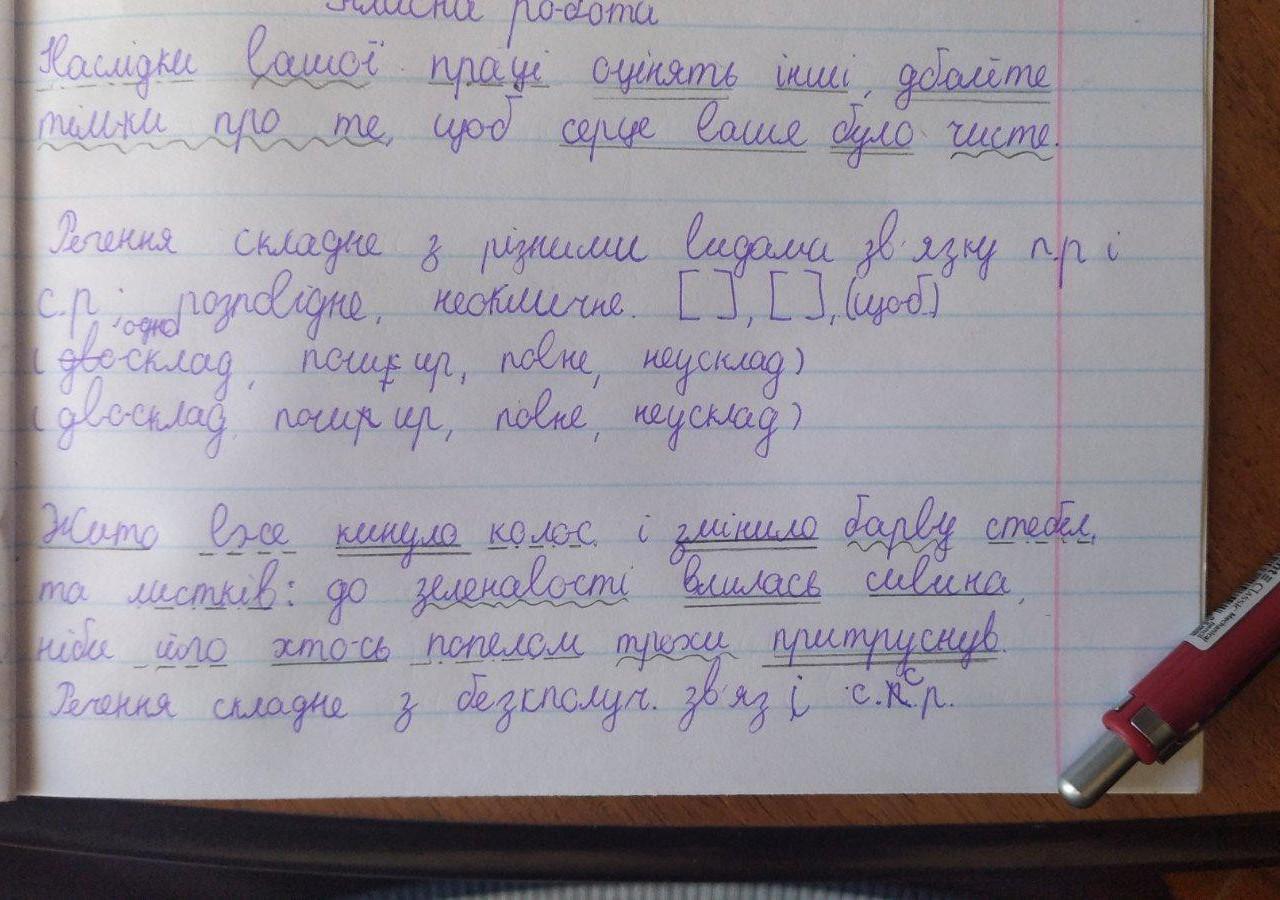 Класна робота
Наслідки вашої праці оцінять інші, дбайте
тільки про те, щоб серце ваше було чисте.
Речення складне з різними видами зв'язку п.р і
с.р; розповідне, неокличне. [ ], [ ], (щоб.)
одно
(двосклад, пошир ир, повне, неусклад)
(двосклад, пошир ир, повне, неусклад)
Жито вже кинуло колос і змінило барву стебел,
та листків: до зеленавості влилась сивина,
ніби його хтось попелом трохи притруснув.
Речення складне з безксполуч. зв'яз і с.с.р.
CLASSIC